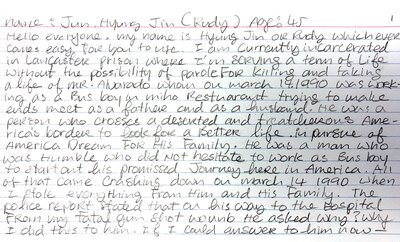 Name: Jun, Hyung Jin (Rudy) Age: 45 1
Hello everyone. my name is Hyung Jin or Rudy which ever
comes easy for you to use. I am currently incarcerated
in Lancaster prison where I'm serving a term of Life
without the possibility of parole For killing and taking
a life of mr. Alvarado whom on march 14, 1990 was work-
ing as a Bus boy in miho Resturant trying to make
ends meet as a forthere and as a husband. He was a
person who crosses a deserted and treatcheneous Ame-
rica's border to look for a Better life in pursue of
America Dream For His Family. He was a man who
was Humble who did not hesitate to work as Bus boy
to start out his promissed Journey here in America. All
of that came Crashing down on march 14 1990 when
I stole everything From Him and His Family. The
police report stated that on his way to the Hospital
From my fatal gun shot wound He asked why? why
I did this to him. If I could answer to him now